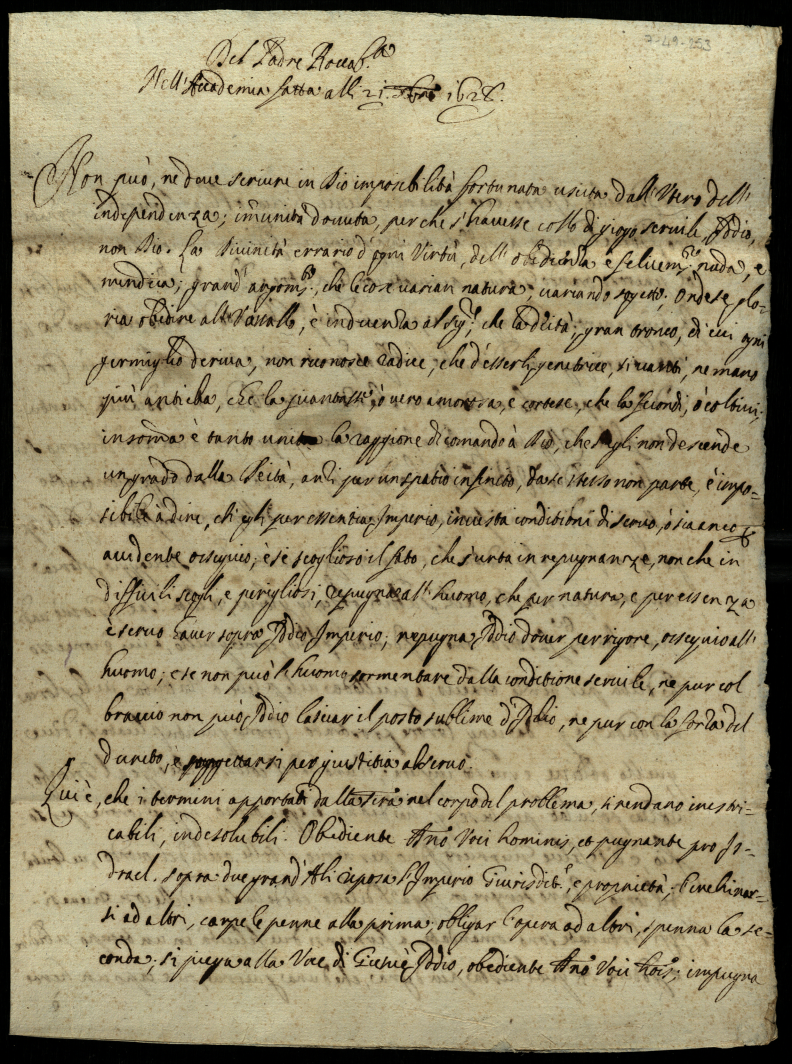 Del Padre Roccab.ta
Nell' Academia fatta alli 21. 1628.
Non può, ne deve servire in Dio imposibilità fortunata uscita dall' Utero dell'
independenza; im̃unità dovuta, perche s'havesse collo di giogo servile Iddio,
non Dio. La Divinità errario d'ogni Virtù, dell' obidienza è selvem.te nuda, e
mendica; grand' argom.to, che le cose varian natura, variando sogetto. Onde se glo-
ria obidire all Vasallo, è indecenza al Sig.r; che la deità, gran tronco, di cui ogni
germoglio deriva, non riconosce radice, che d'esserli genitrice, si vanti, ne mano
più antica, che la piantasse, ò vero amorosa, e cortese, che la fecondi, ò coltivi;
in som̃a è tanto unita la raggione di comando à Dio, che s'egli non descende
un grado dalla Deità, anzi per un spatio infinito, da se stesso non parte, è impo-
sibile à dire, ch'egli per essentia Imperio, investa conditioni di servo, ò sia anco
accidente ossequio; e se scoglioso il fato, che s'urta in repugnanze, non che in
difficili scogli, e perigliosi, repugna all' huomo, che per natura, e per essenza
è servo haver sopra Iddio Imperio; repugna Iddio dover per rigore, ossequio all'
huomo; e se non può l'huomo sormontare dalla conditione servile, ne pur col
braccio non può Iddio lasciar il posto sublime d'Iddio, ne pur con la forza del
d, e soggettarsi per giustitia al servo.
Qui è, che i termini apportati dalla nel corpo del problema, si rendano inestri-
cabili, indesolubili. Obediente Dn̄o Voci hominis, et pugnante pro Is-
drael. sopra due grand' Ali riposa l'Imperio Giurisdit.e, e proprietà; l'inchinar-
si ad altri, carpe le penne alla prima; obligar l'opera ad altri, spenna la se-
conda; si piega alla Voce di Giesuè Iddio, obediente Dn̄o Voci hois; impugna